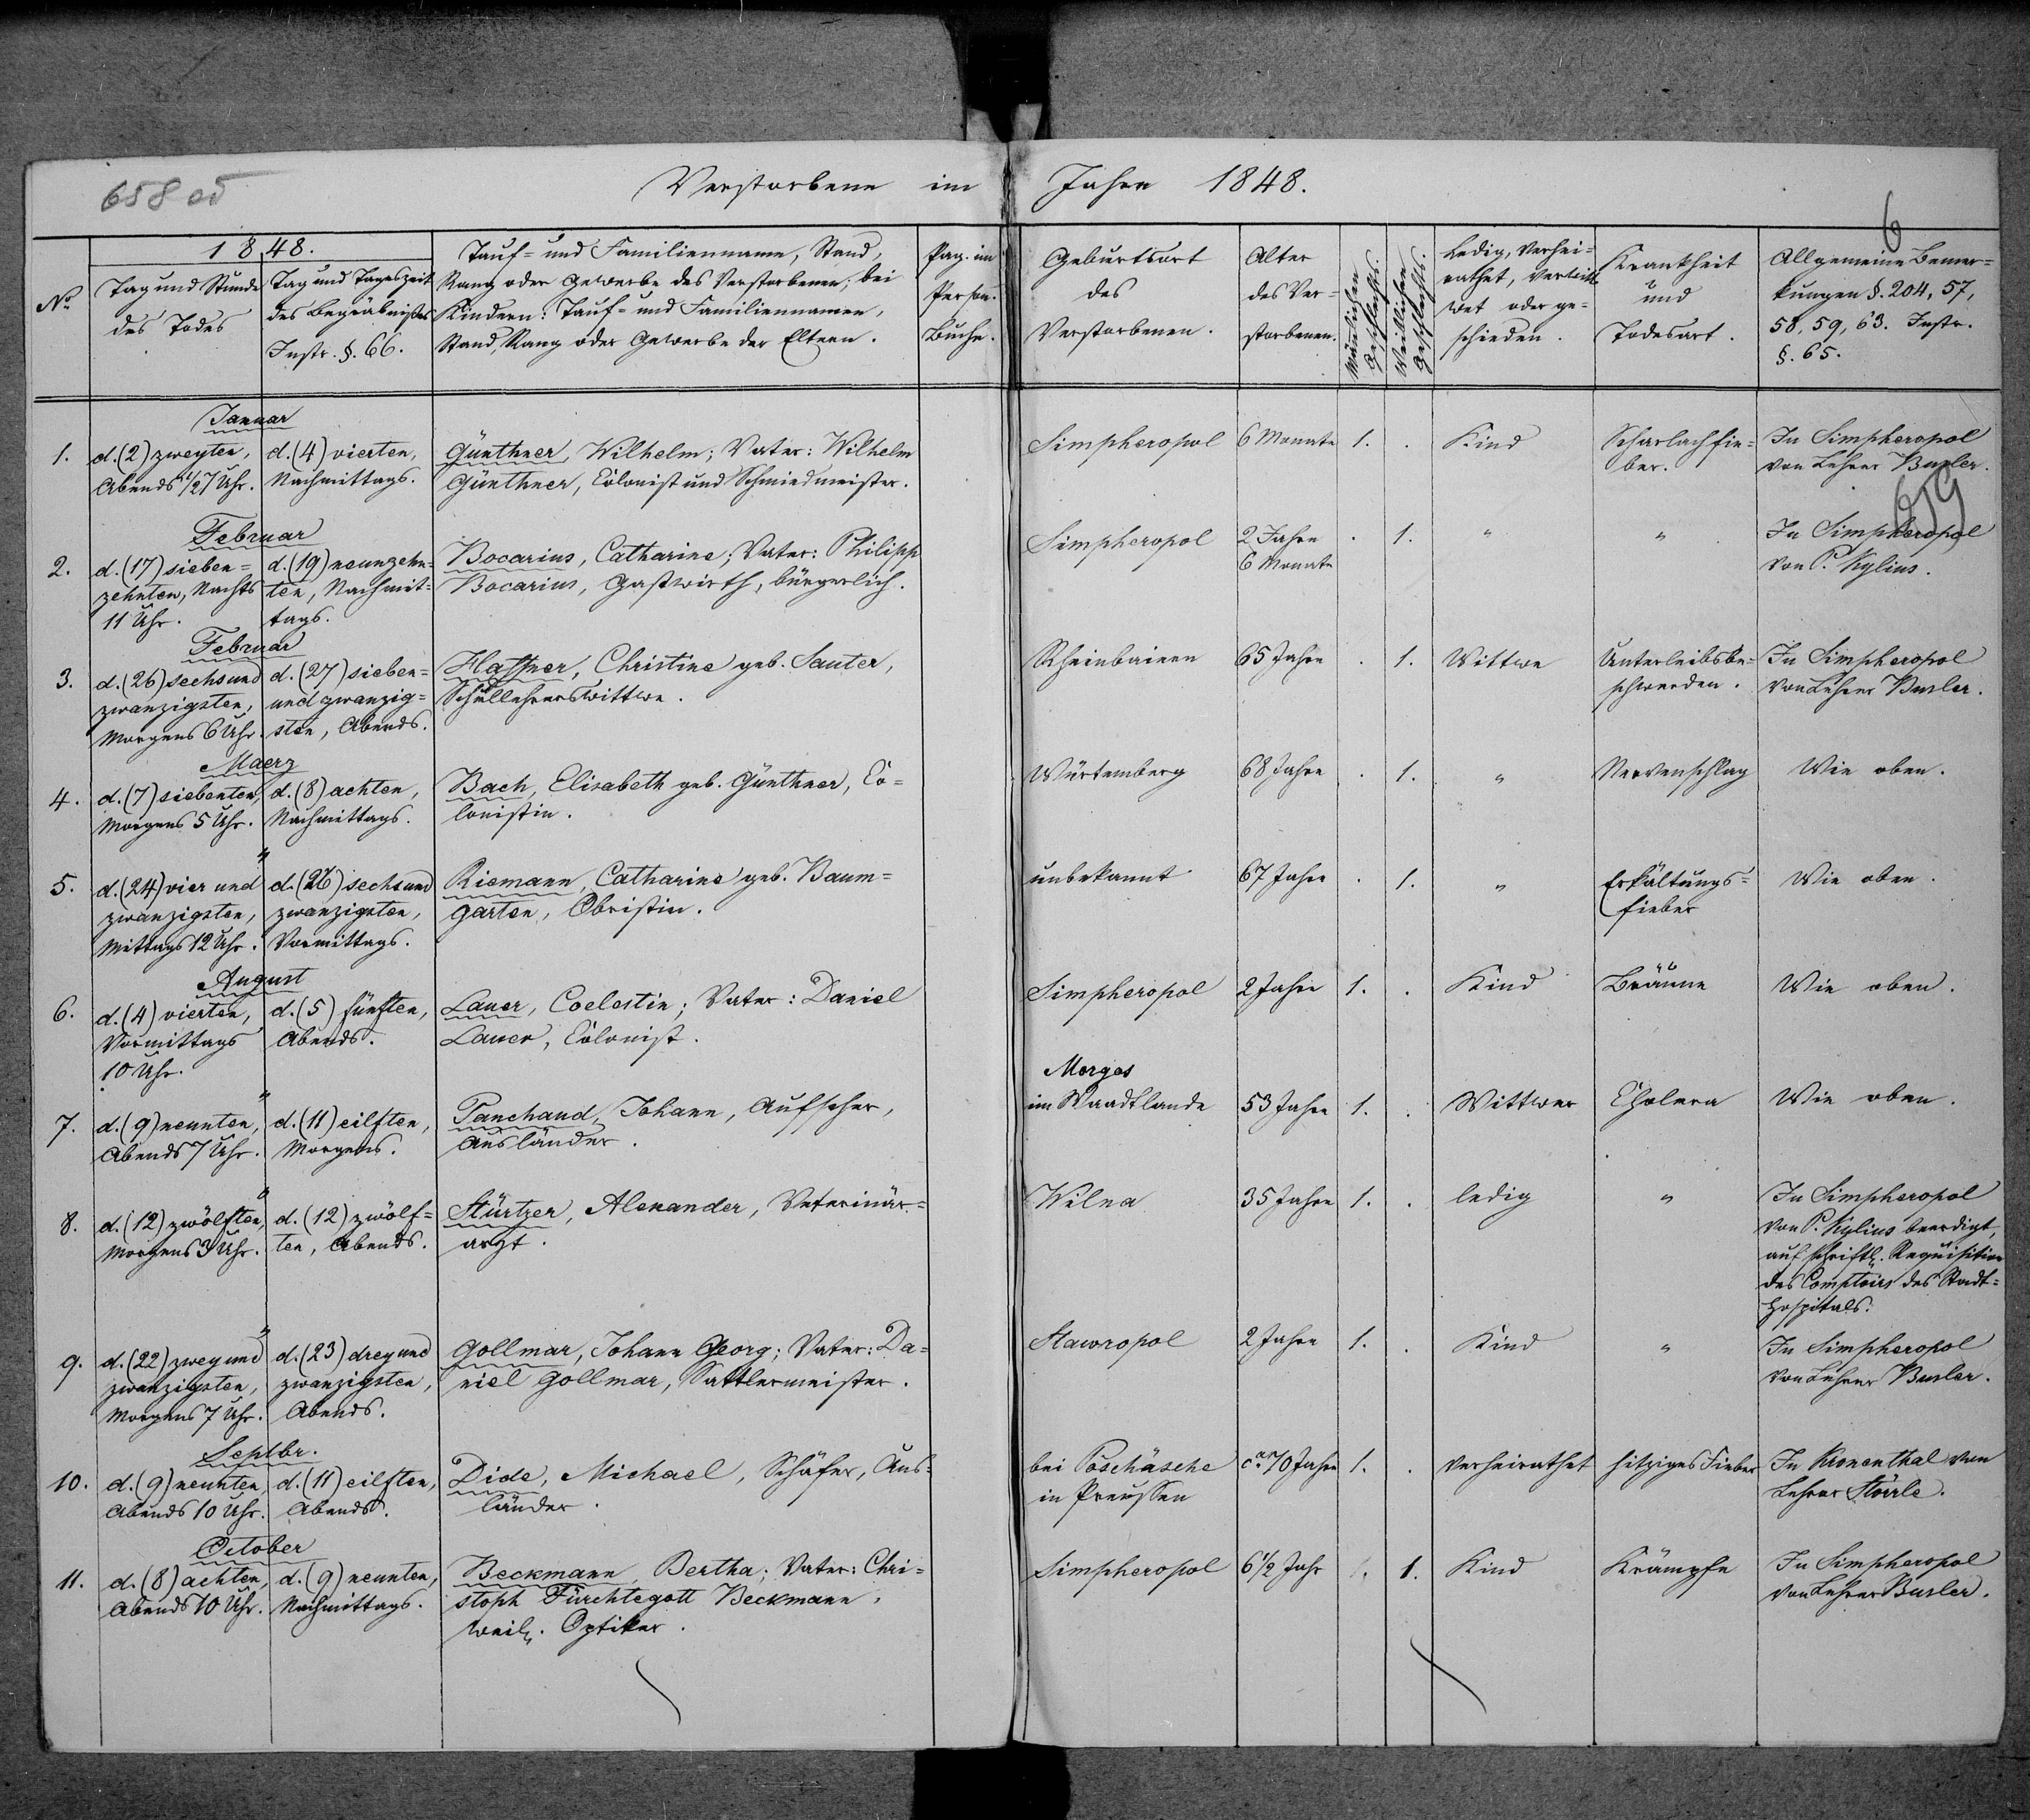 658 od
Verstorbene im Jahre 1848.
6
No
1848.
Tag und Stunde
des Todes
Tag und Tageszeit
des Begräbnisses
Instr. §. 66.
Tauf- und Familienname, Stand,
Rang oder Gewerbe des Verstorbenen; bei
Kindern: Tauf- und Familiennamen,
Stand, Rang oder Gewerbe der Eltern.
Pag. im
Person.
Buche.
Geburtsort
des
Verstorbenen.
Alter
des Ver=
storbenen.
Männlichen
Geschlechts.
Weiblichen
Geschlechts.
Ledig, Verhei=
rathet, Verwitt
wet oder ge=
schieden.
Krankheit
und
Todesart.
Allgemeine Bemer=
kungen §. 204, 57,
58, 59, 63. Instr.
§. 65.
Januar
1.
d. (2) zweyten,
Abends 1/2 7 Uhr.
d. (4) vierten,
Nachmittags.
Günthner, Wilhelm; Vater: Wilhelm
Günthner, Colonist und Schmiedmeister.
Simpheropol
6 Monate
1.
.
Kind
Scharlachfie=
ber.
In Simpheropol
von Lehrer Busler.
659
Februar
2.
d. (17) sieben=
zehnten, Nachts
11 Uhr.
d. (19) neunzehn=
ten, Nachmit=
tags.
Bocarius, Catharine; Vater: Philipp
Bocarius, Gastwirth, bürgerlich.
Simpheropol
2 Jahre
6 Monate
.
1.
"
"
In Simpheropol
von P. Kylius.
Februar
3.
d. (26) sechsund
zwanzigsten,
Morgens 6 Uhr.
d. (27) sieben=
undzwanzig=
sten, Abends.
Haffner, Christine geb. Sauter,
Schullehrerswittwe.
Rheinbaiern
65 Jahre
.
1.
Wittwe
Unterleibsbe=
schwerden.
In Simpheropol
von Lehrer Busler.
Maerz
4.
d. (7) siebenten,
Morgens 5 Uhr.
d. (8) achten,
Nachmittags.
Bach, Elisabeth geb. Günthner, Co=
lonistin.
Würtemberg
68 Jahre
.
1.
"
Nervenschlag
Wie oben.
"
5.
d. (24) vier und
zwanzigsten,
Mittags 12 Uhr.
d. (26) sechsund
zwanzigsten,
Vormittags.
Riemann, Catharine geb. Baum=
garten, Obristin.
unbekannt
67 Jahre
.
1.
"
Erkältungs=
fieber
Wie oben.
August
6.
d. (4) vierten,
Vormittags
10 Uhr.
d. (5) fünften,
Abends.
Lauer, Coelestin; Vater: Daniel
Lauer, Colonist.
Simpheropol
2 Jahre
1.
.
Kind
Bräune
Wie oben.
"
7.
d. (9) neunten,
Abends 7 Uhr.
d. (11) eilften,
Morgens.
Panchaud, Johann, Aufseher,
Ausländer.
Morges
im Waadtlande
53 Jahre
1.
.
Wittwer
Cholera
Wie oben.
"
8.
d. (12) zwölften,
Morgens 3 Uhr.
d. (12) zwölf=
ten, Abends.
Stürtzer, Alexander, Veterinär=
arzt.
Wilna
35 Jahre
1.
.
ledig
"
In Simpheropol
von P. Kylius beerdigt,
auf schriftl. Requisition
des Comptoirs des Stadt=
hospitals.
"
9.
d. (22) zwey und
zwanzigsten,
Morgens 7 Uhr.
d. (23) drey und
zwanzigsten,
Abends.
Gollmar, Johann Georg; Vater: Da=
niel Gollmar, Sattlermeister.
Stawropol
2 Jahre
1.
.
Kind
"
In Simpheropol
von Lehrer Busler.
Septbr.
10.
d. (9) neunten,
Abends 10 Uhr.
d. (11) eilften,
Abends.
Dide, Michael, Schäfer, Aus=
länder.
bei Poschäsche
in Preussen
ca 70 Jahre
1.
.
verheirathet
hitziges Fieber
In Kronenthal von
Lehrer Störrle.
October
11.
d. (8) achten,
Abends 10 Uhr.
d. (9) neunten,
Nachmittags.
Beckmann, Bertha; Vater: Chri=
stoph Fürchtegott Beckmann,
weil. Optiker.
Simpheropol
6 1/2 Jahr
.
1.
Kind
Krämpfe
In Simpheropol
von Lehrer Busler.